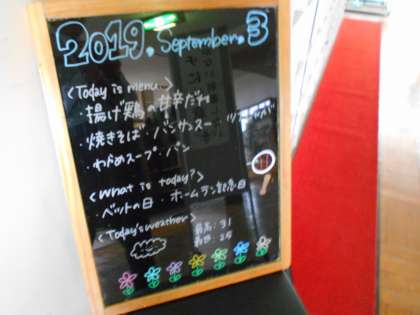 2019.September.3
<Today is menu>
・揚げ鶏の甘辛だれ
・焼きそば・バンサンスー
・わかめスープ・パン
<What is today?>
・ベットの日・ホームラン記念日
<Today's weather>
最高:31